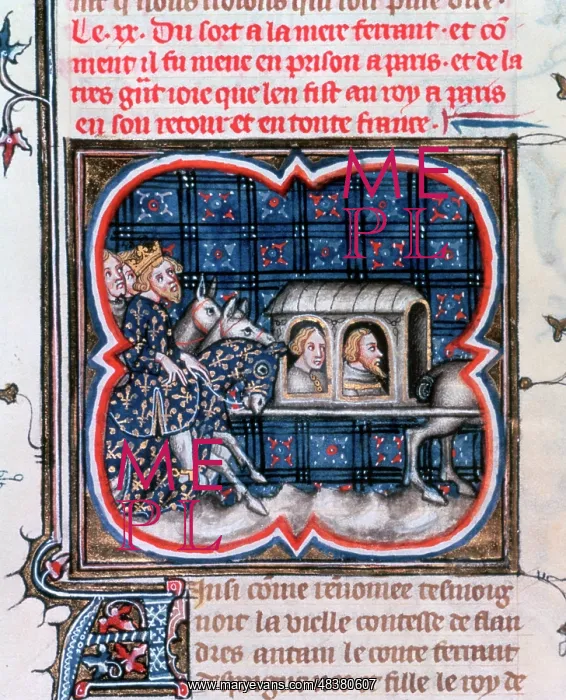 Le .xx. Du sort a la mere ferrant. et cō
ment il fu mene en prison a paris. et de la
tres grāt ioie que len fist au roy a paris
en son retour et en toute france.
ME
PL
ME
PL
Ainsi cōme renomee tesmoig
noit la vielle contesse de flan
dres antain le conte ferrant
fille le roy de
www.maryevans.com/48380607